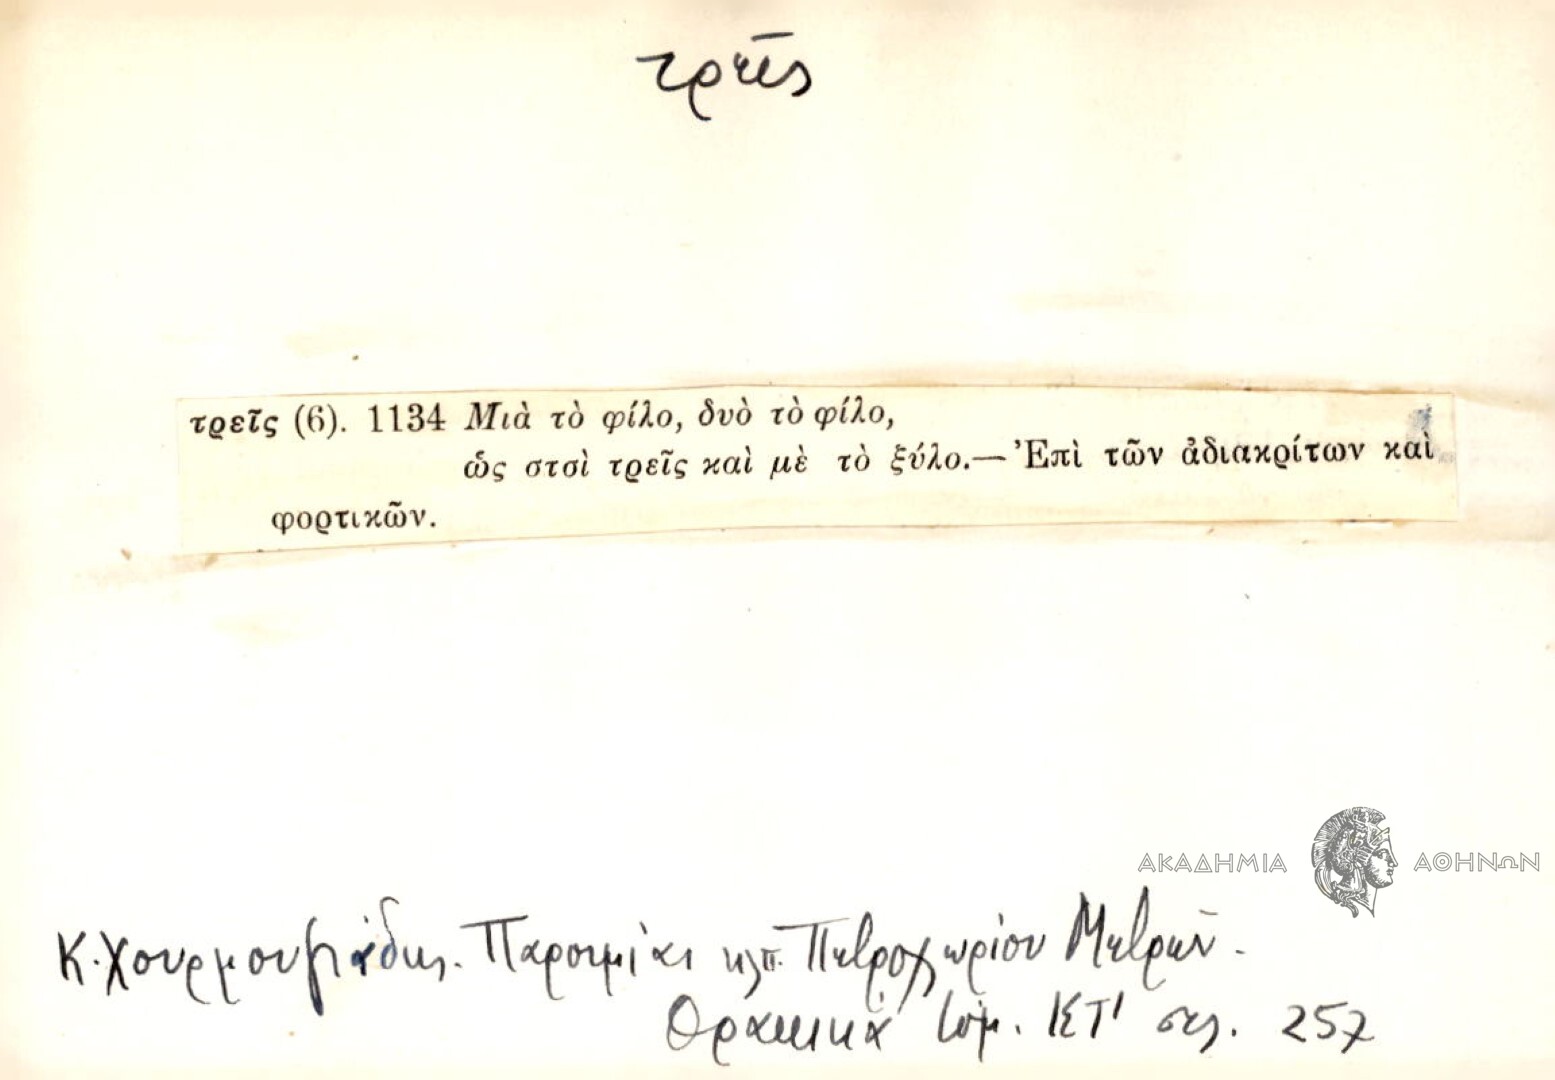 τρεῖς
τρεῖς (6). 1134 Μιὰ τὸ φίλο, δυὸ τὸ φίλο,
ὡς στσὶ τρεῖς καὶ μὲ τὸ ξύλο.— Ἐπὶ τῶν ἀδιακρίτων καὶ
φορτικῶν.
ΑΚΑΔΗΜΙΑ ΑΘΗΝΩΝ
Κ. Χουρμουζιάδης. Παροιμίαι κλπ. Πετροχωρίου Μετρῶν.
Θρακικὰ τόμ. ΚΤ' σελ. 257